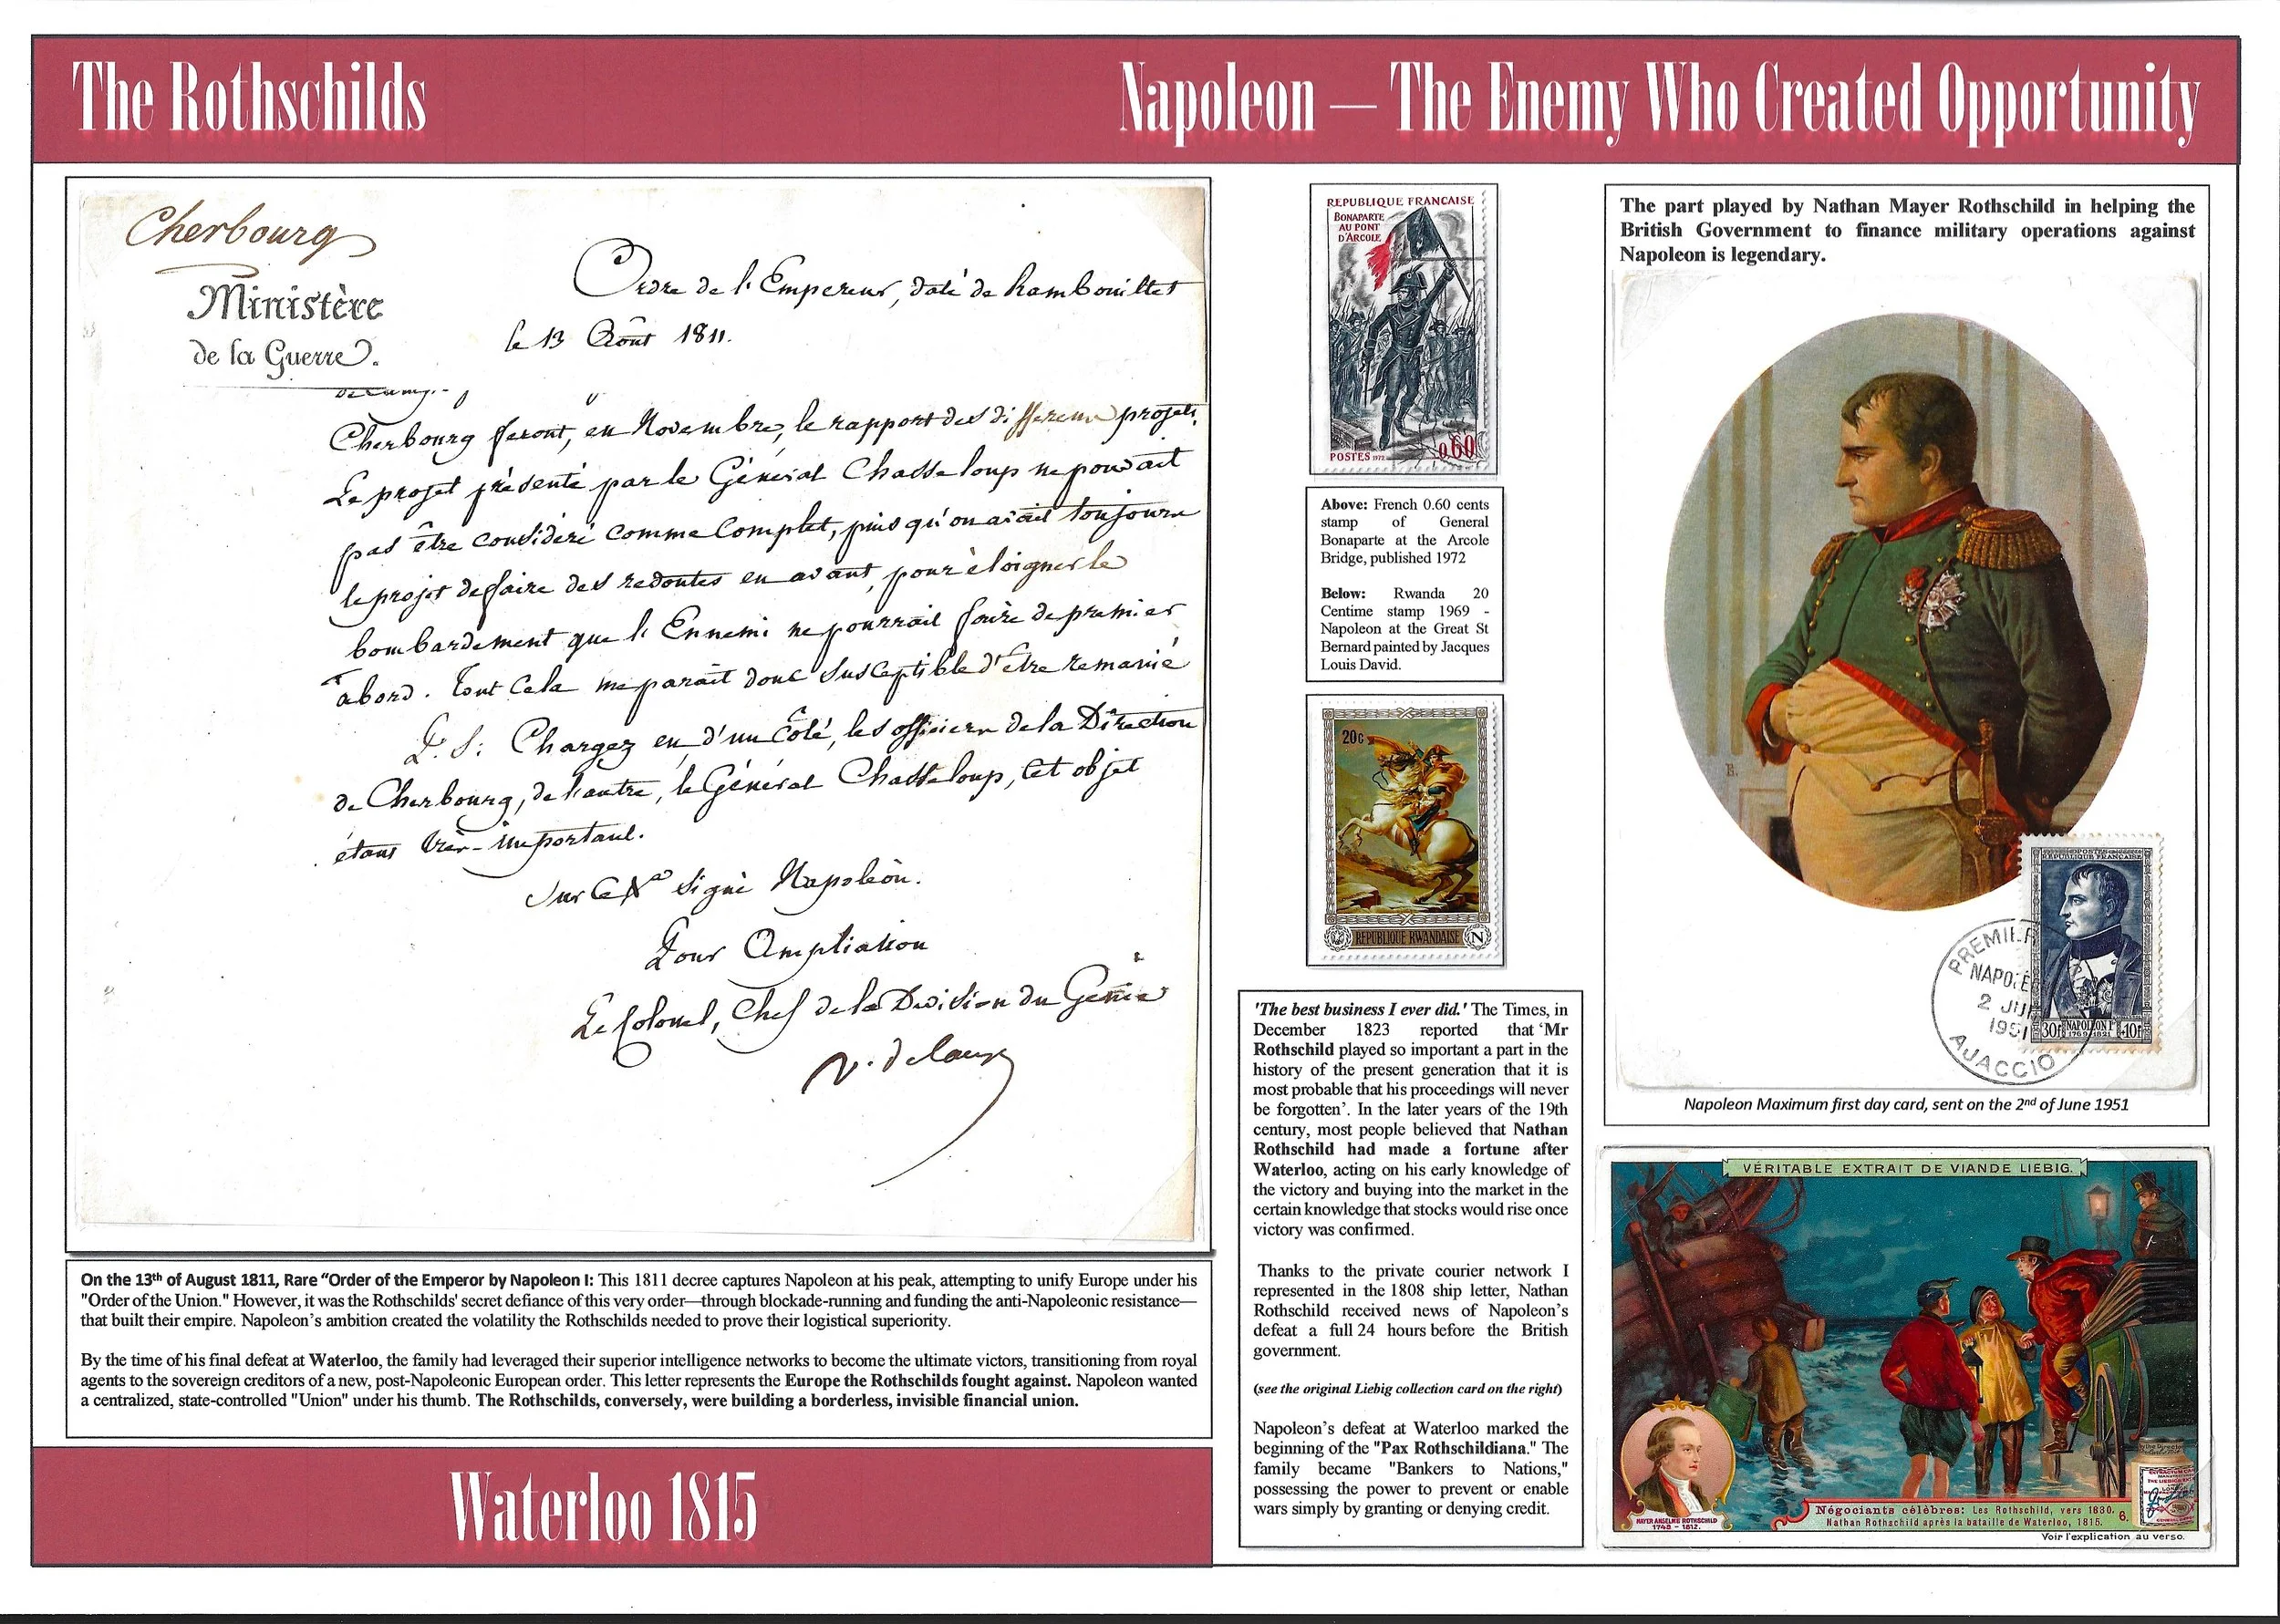 The Rothschilds
Napoleon — The Enemy Who Created Opportunity
Cherbourg
Ministère
de la Guerre.
Ordre de l'Empereur, daté de Rambouillet
le 13 Août 1811.
Cherbourg feront, en Novembre, le rapport des différens projets.
Le projet présenté par le Général Chasseloup ne pouvait
pas être considéré comme complet, puisqu'on avait toujours
le projet de faire des redoutes en avant, pour éloigner le
bombardement que l'Ennemi ne pourrait faire de premier
abord. Tout cela me parait donc susceptible d'être remanié
P. S. Chargez en, d'un côté, les officiers de la Direction
de Cherbourg, de l'autre, le Général Chasseloup, cet objet
étant très-important.
Sur ce signé Napoléon.
Pour Ampliation
Le Colonel, Chef de la Division du Génie
On the 13th of August 1811, Rare “Order of the Emperor by Napoleon I: This 1811 decree captures Napoleon at his peak, attempting to unify Europe under his
"Order of the Union." However, it was the Rothschilds' secret defiance of this very order—through blockade-running and funding the anti-Napoleonic resistance—
that built their empire. Napoleon’s ambition created the volatility the Rothschilds needed to prove their logistical superiority.
By the time of his final defeat at Waterloo, the family had leveraged their superior intelligence networks to become the ultimate victors, transitioning from royal
agents to the sovereign creditors of a new, post-Napoleonic European order. This letter represents the Europe the Rothschilds fought against. Napoleon wanted
a centralized, state-controlled "Union" under his thumb. The Rothschilds, conversely, were building a borderless, invisible financial union.
Waterloo 1815
REPUBLIQUE FRANCAISE
BONAPARTE
AU PONT
D'ARCOLE
POSTES 1972
0,60
Above: French 0.60 cents
stamp of General
Bonaparte at the Arcole
Bridge, published 1972
Below: Rwanda 20
Centime stamp 1969 -
Napoleon at the Great St
Bernard painted by Jacques
Louis David.
20c
REPUBLIQUE RWANDAISE
N
'The best business I ever did.' The Times, in
December 1823 reported that ‘Mr
Rothschild played so important a part in the
history of the present generation that it is
most probable that his proceedings will never
be forgotten’. In the later years of the 19th
century, most people believed that Nathan
Rothschild had made a fortune after
Waterloo, acting on his early knowledge of
the victory and buying into the market in the
certain knowledge that stocks would rise once
victory was confirmed.
Thanks to the private courier network I
represented in the 1808 ship letter, Nathan
Rothschild received news of Napoleon’s
defeat a full 24 hours before the British
government.
(see the original Liebig collection card on the right)
Napoleon’s defeat at Waterloo marked the
beginning of the "Pax Rothschildiana." The
family became "Bankers to Nations,"
possessing the power to prevent or enable
wars simply by granting or denying credit.
The part played by Nathan Mayer Rothschild in helping the
British Government to finance military operations against
Napoleon is legendary.
POSTES
REPUBLIQUE FRANÇAISE
30F NAPOLEON Iᵉʳ +10F
1769-1821
PREMIER
NAPOLÉ
2 JUI
1951
AJACCIO
Napoleon Maximum first day card, sent on the 2nd of June 1951
VÉRITABLE EXTRAIT DE VIANDE LIEBIG.
MAYER ANSELME ROTHSCHILD
1743 - 1812.
Négociants célèbres: Les Rothschild, vers 1830.
Nathan Rothschild après la bataille de Waterloo, 1815.
6.
Voir l'explication au verso.